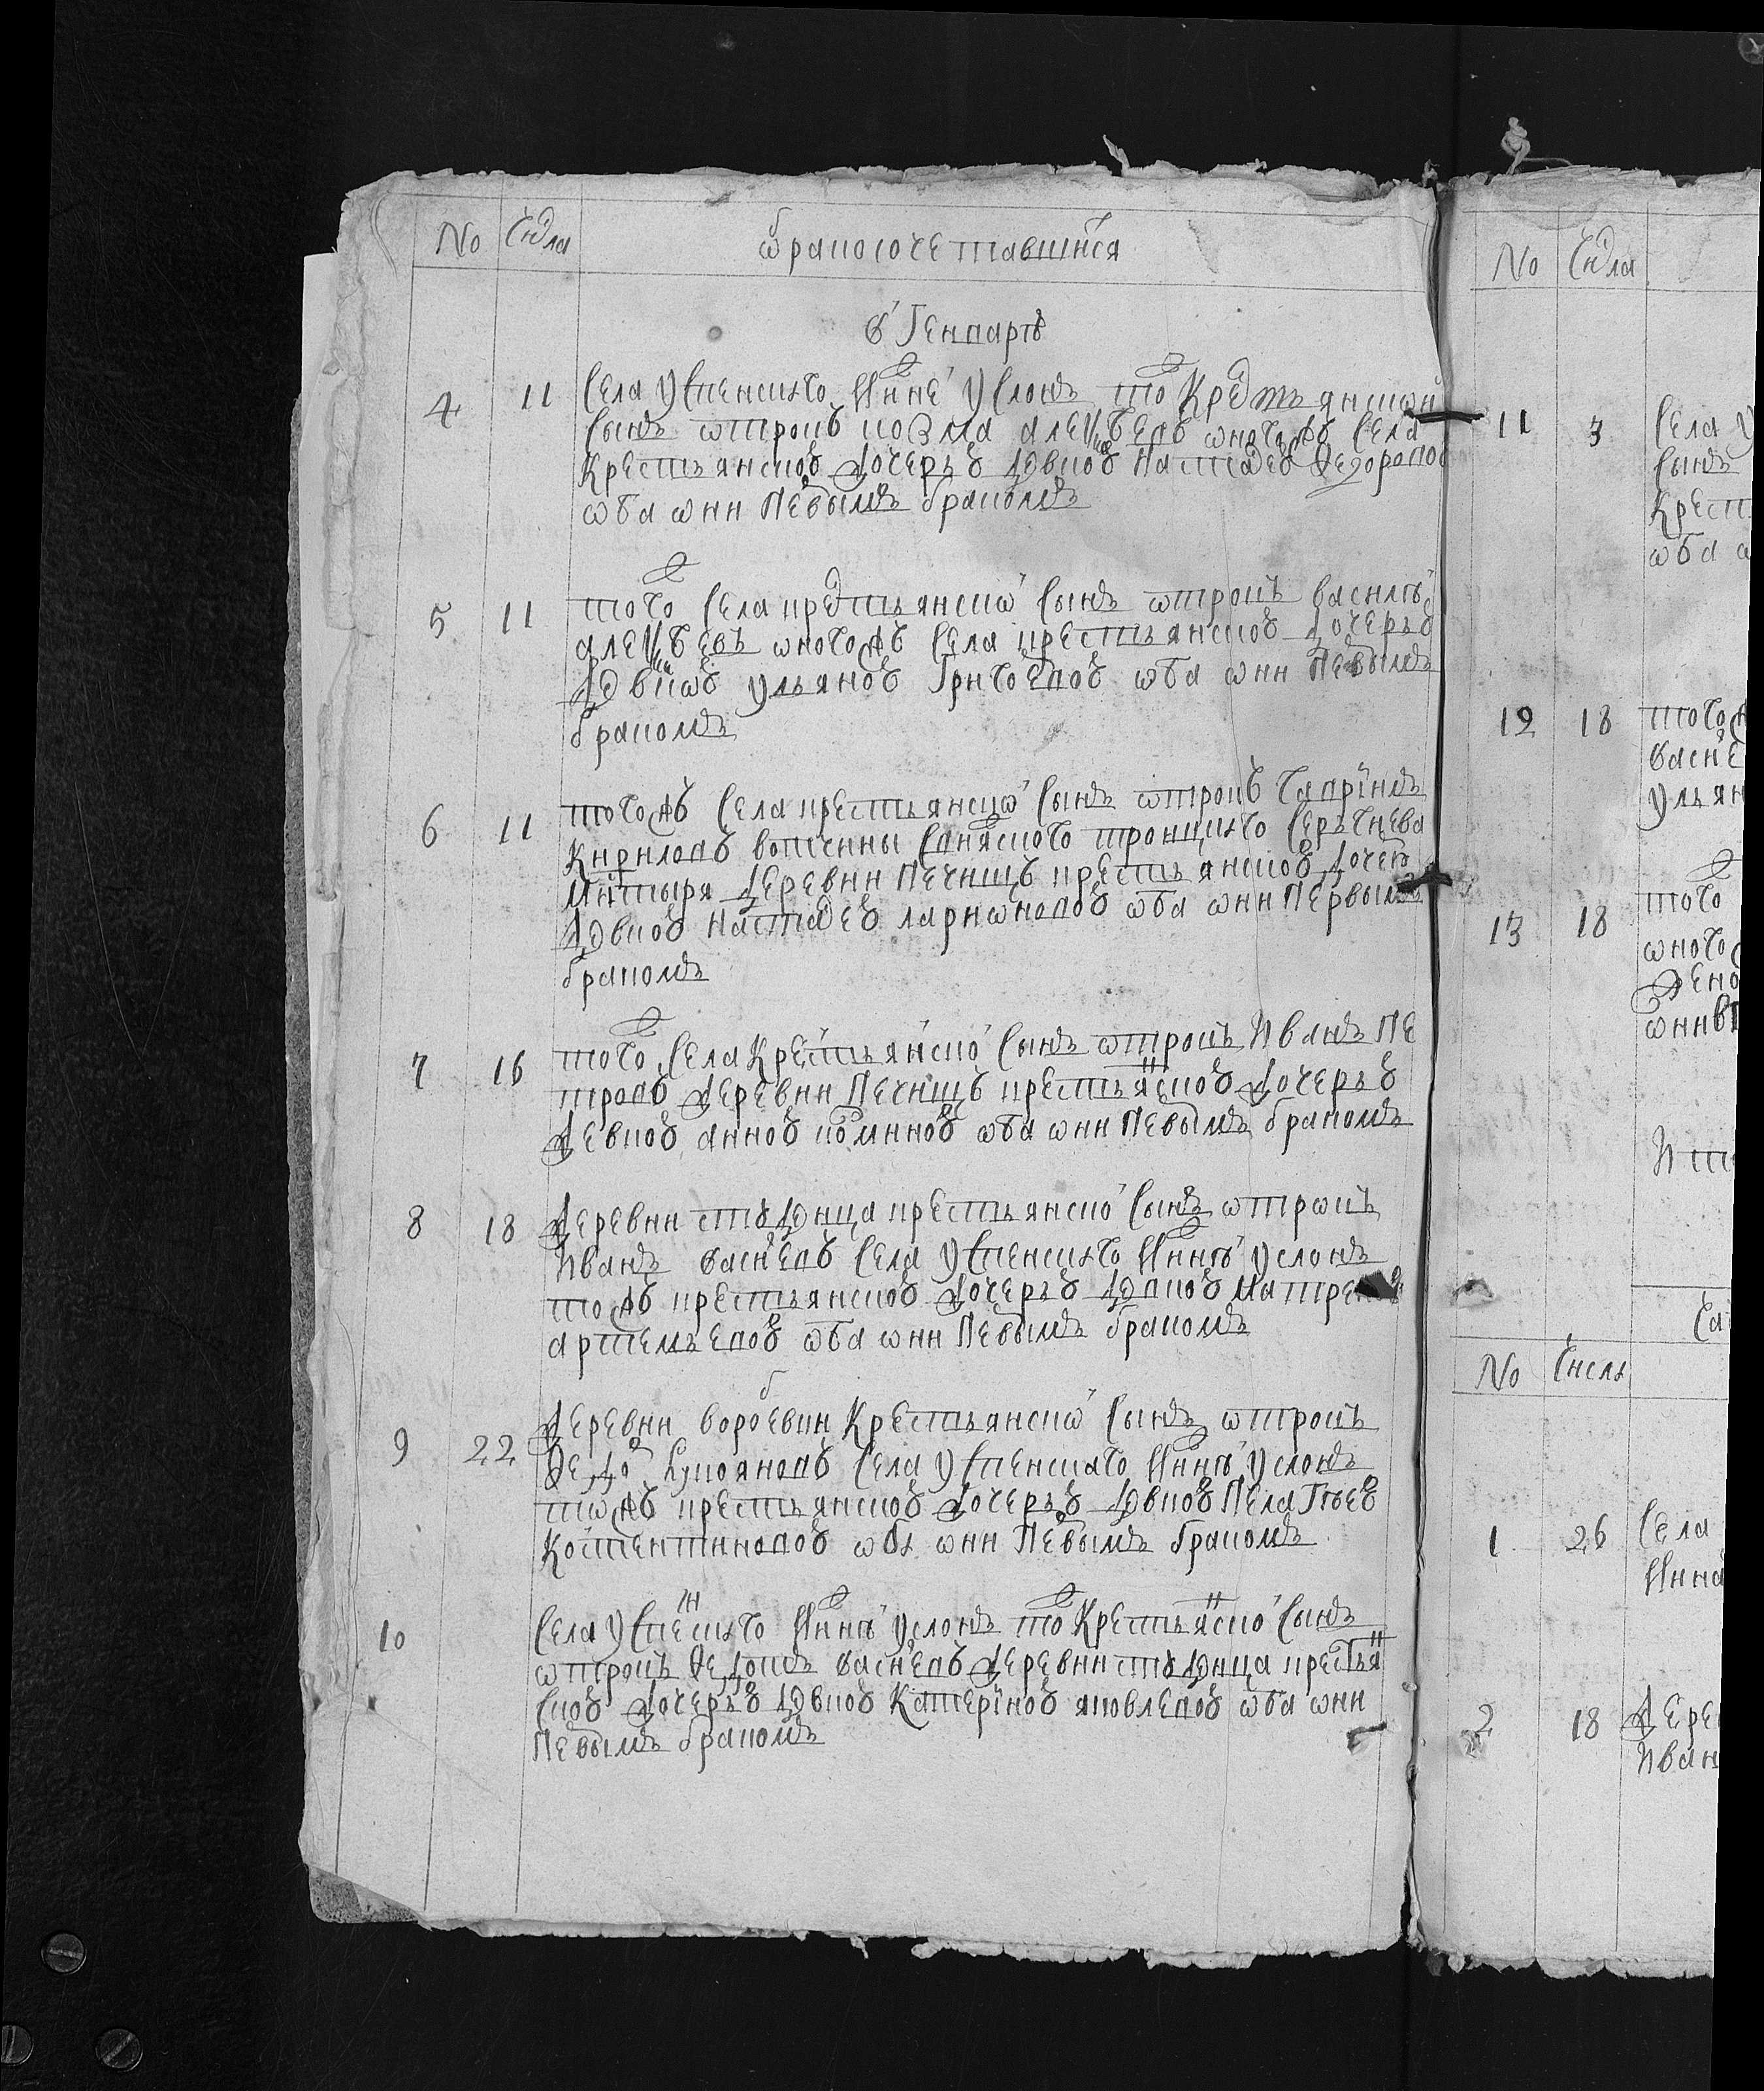 No Числа бракосочетавшїися
в Генваре
4 11 Села Успенскаго Нижнеи Услонъ то Крестьянскои
Сынъ отрокъ козма алексѣевъ оногожъ Села
Крестьянскою дочерью девкою настасею Федоровою
оба они Первымъ бракомъ
5 11 того Села крестьянскои Сынъ отрокъ василеи
алексѣевъ оногожъ Села крестьянскою дочерью
девкою ульяною Григоревою оба они Первымъ
бракомъ
6 11 тогожъ Села крестьянскои Сынъ отрокъ гаврїилъ
Кириловъ вотчины Свияского троицкаго Сергиева
мнтыря деревни Печищь крестьянскою дочерю
девкою настасею ларионовою оба они Первымъ
бракомъ
7 16 того Села Крестьянской Сынъ отрокъ Иванъ Пе
тровъ деревни Печищь крестьянскою дочерью
девкою анною козминою оба они Первымъ бракомъ
8 18 деревни студенца крестьянской Сынъ отрокъ
Иванъ васильевъ Села Успенскаго Нижнеи услонъ
тожъ крестьянскою дочерью девкою матреною
артемьевою оба они Первымъ бракомъ
9 22 деревни воробевки Крестьянскои Сынъ отрокъ
Федоръ Купояновъ Села Успенскаго Нижнеи Услонъ
тожъ крестьянскою дочерью девкою Пелагеею
Костентиновою оба они Первымъ бракомъ
10 Села Успенскаго Нижнеи услонъ то Крестьянской Сынъ
отрокъ Федотъ васильевъ деревни студенца крестьян
скою дочерью девкою Катериною яковлевою оба они
Первымъ бракомъ
No Числа
11 3 Села У
Сынъ
Крест
оба о
12 18 того
василе
ульян
13 18 того
оного
они
И
No Числа
1 26 Села
Нижн
2 18 дере
Иван